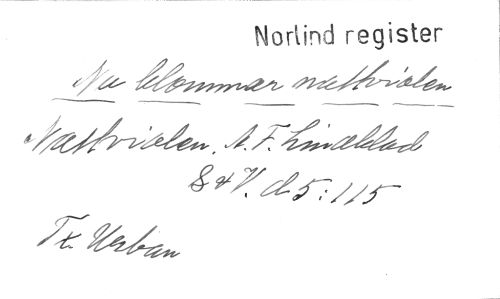 Norlind register
Nu blommar nattviolen
Nattviolen. A. F. Lindblad
S & V. d. 5:115
Tx. Urban